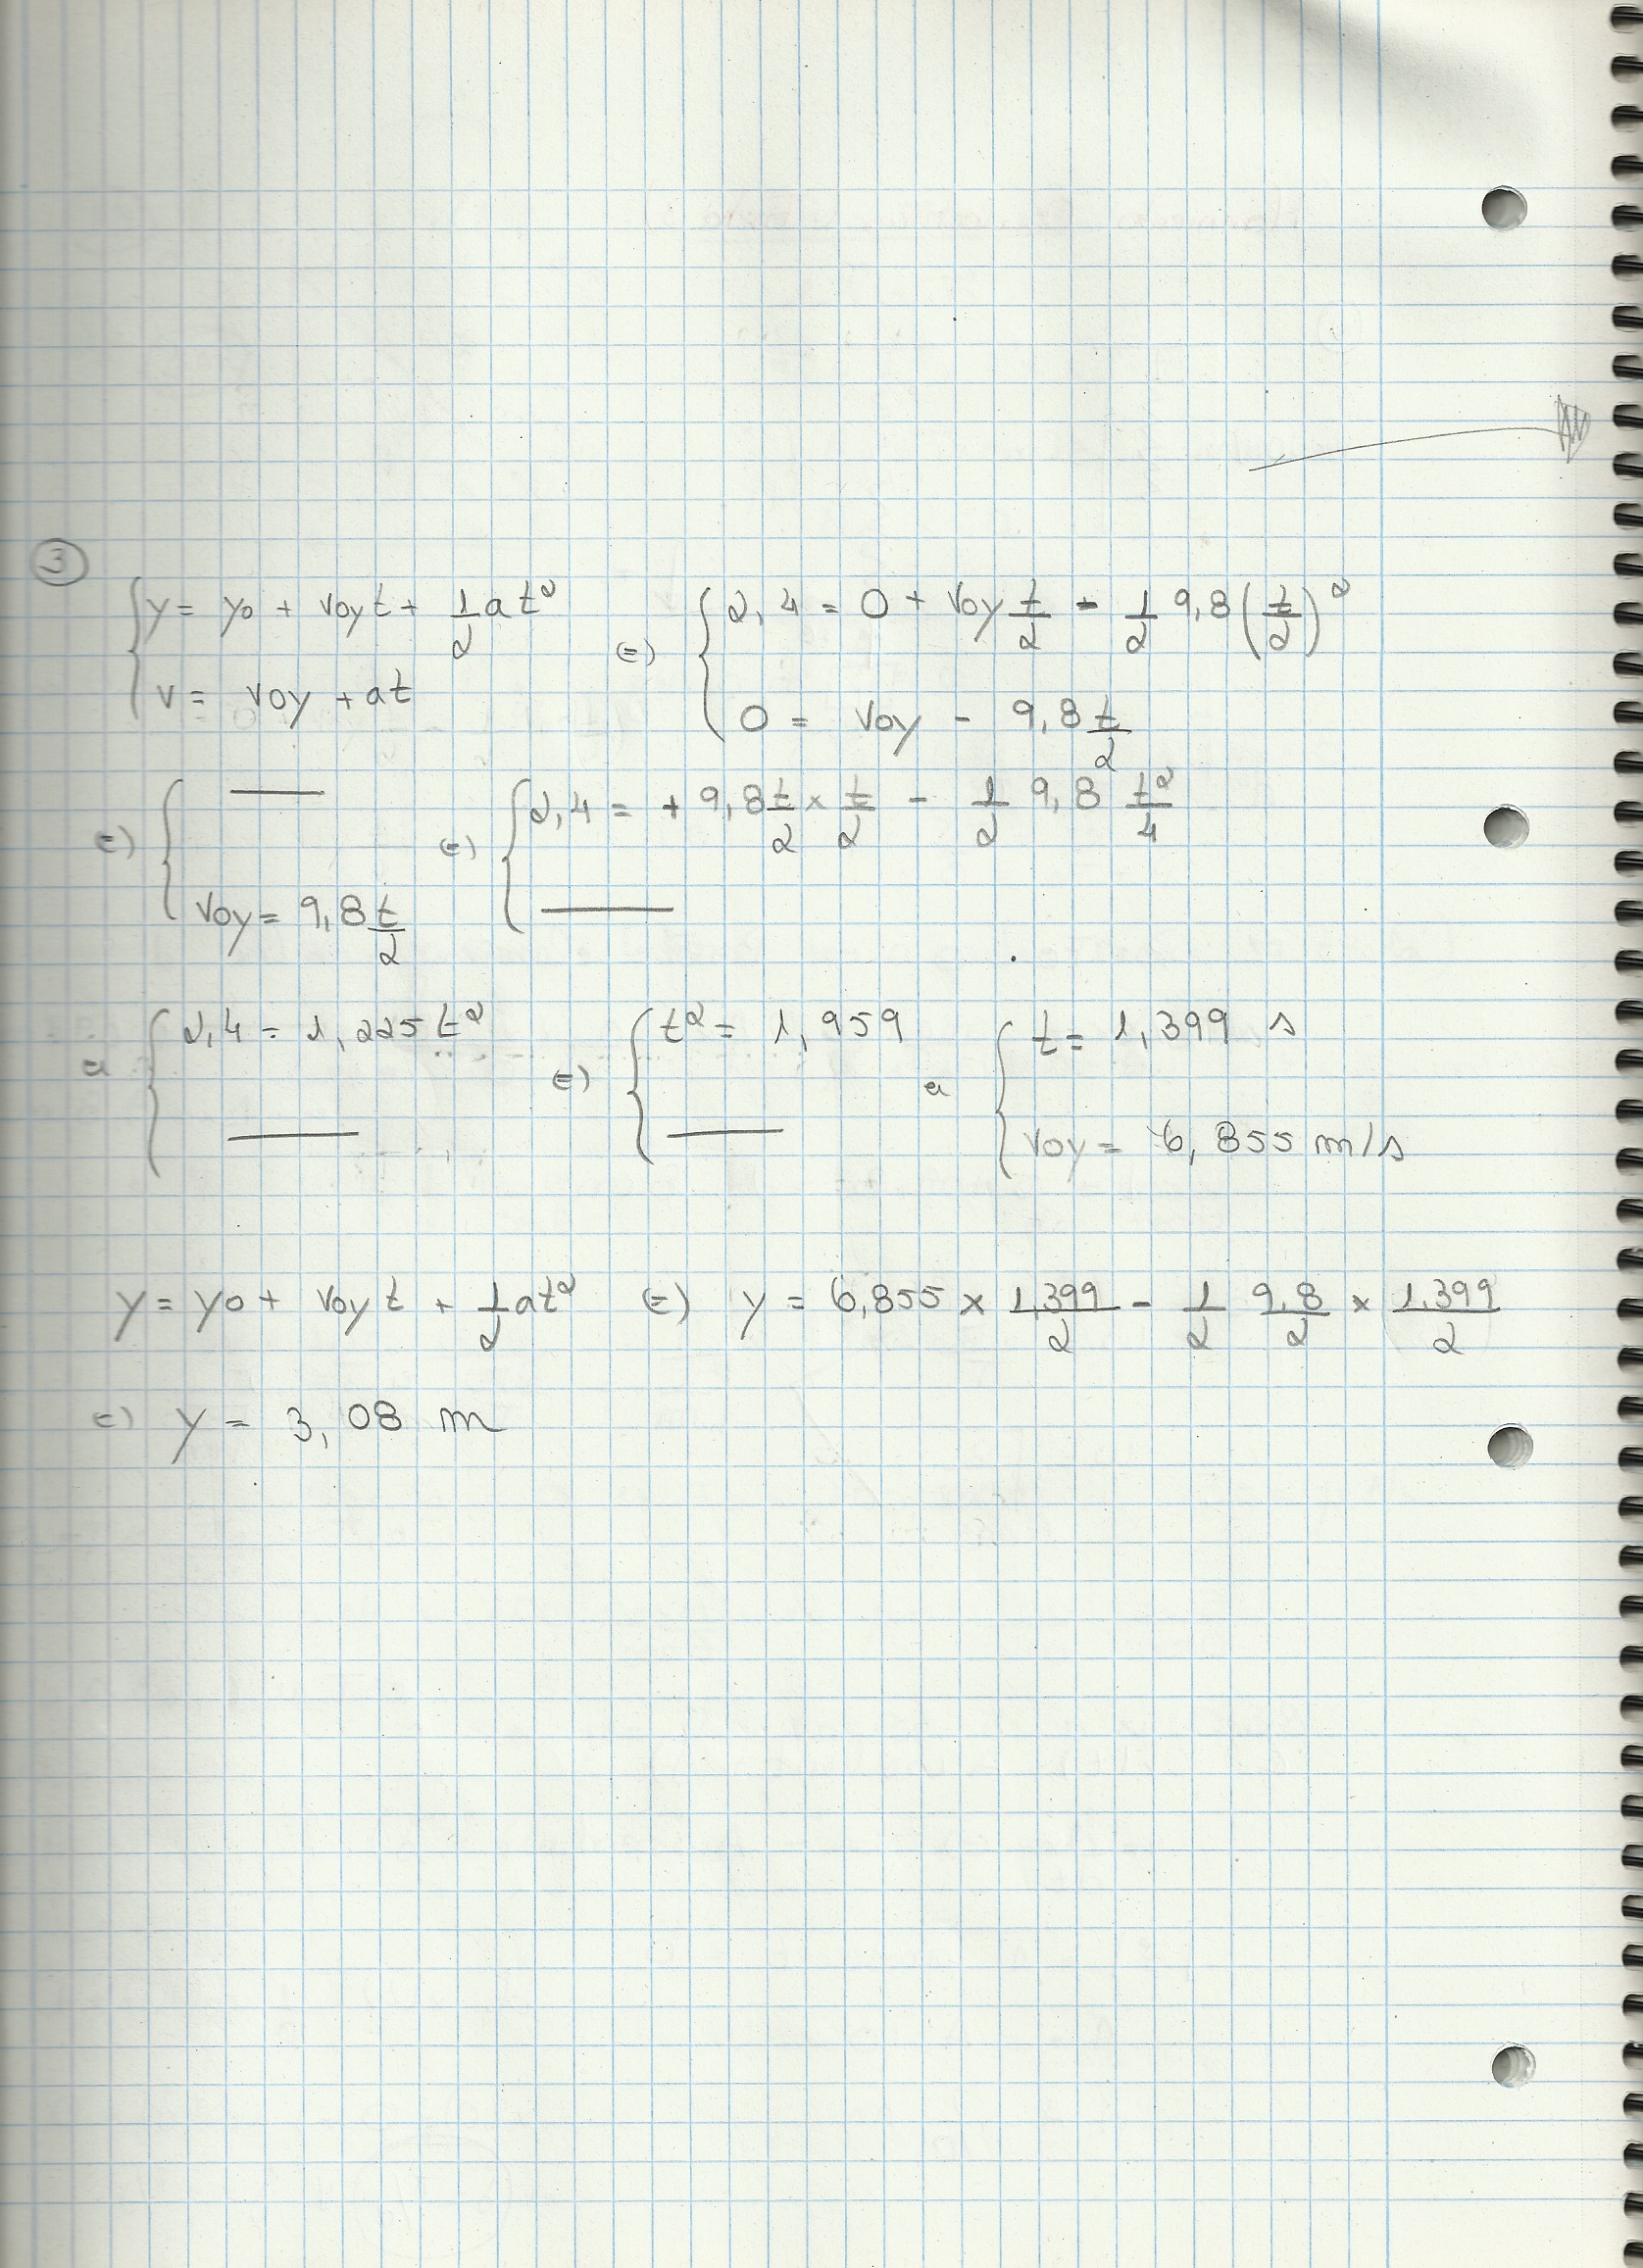 ③
{ y = y0 + v0y t + 1/2 a t² (=) { 2,4 = 0 + v0y t/2 - 1/2 9,8 (t/2)²
{ v = v0y + at { 0 = v0y - 9,8 t/2
(=) { ___ (=) { 2,4 = + 9,8 t/2 × t/2 - 1/2 9,8 t²/4
{ v0y = 9,8 t/2 { ___
(=) { 2,4 = 1,225 t² (=) { t² = 1,959 (=) { t = 1,399 s
{ ___ { ___ { v0y = 6,855 m/s
y = y0 + v0y t + 1/2 a t² (=) y = 6,855 × 1,399/2 - 1/2 9,8/2 × 1,399/2
(=) y = 3,08 m